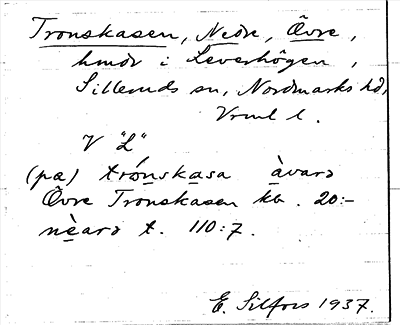 Tronskasen, Nedre, Övre,
hmdr i Leverhögen,
Silleruds sn, Nordmarks hd,
Vrml l.
V "L"
(pæ) trónskasa àvarə
Övre Tronskasen kb. 20:-
nèarə t. 110:7.
E. Silfors 1937.